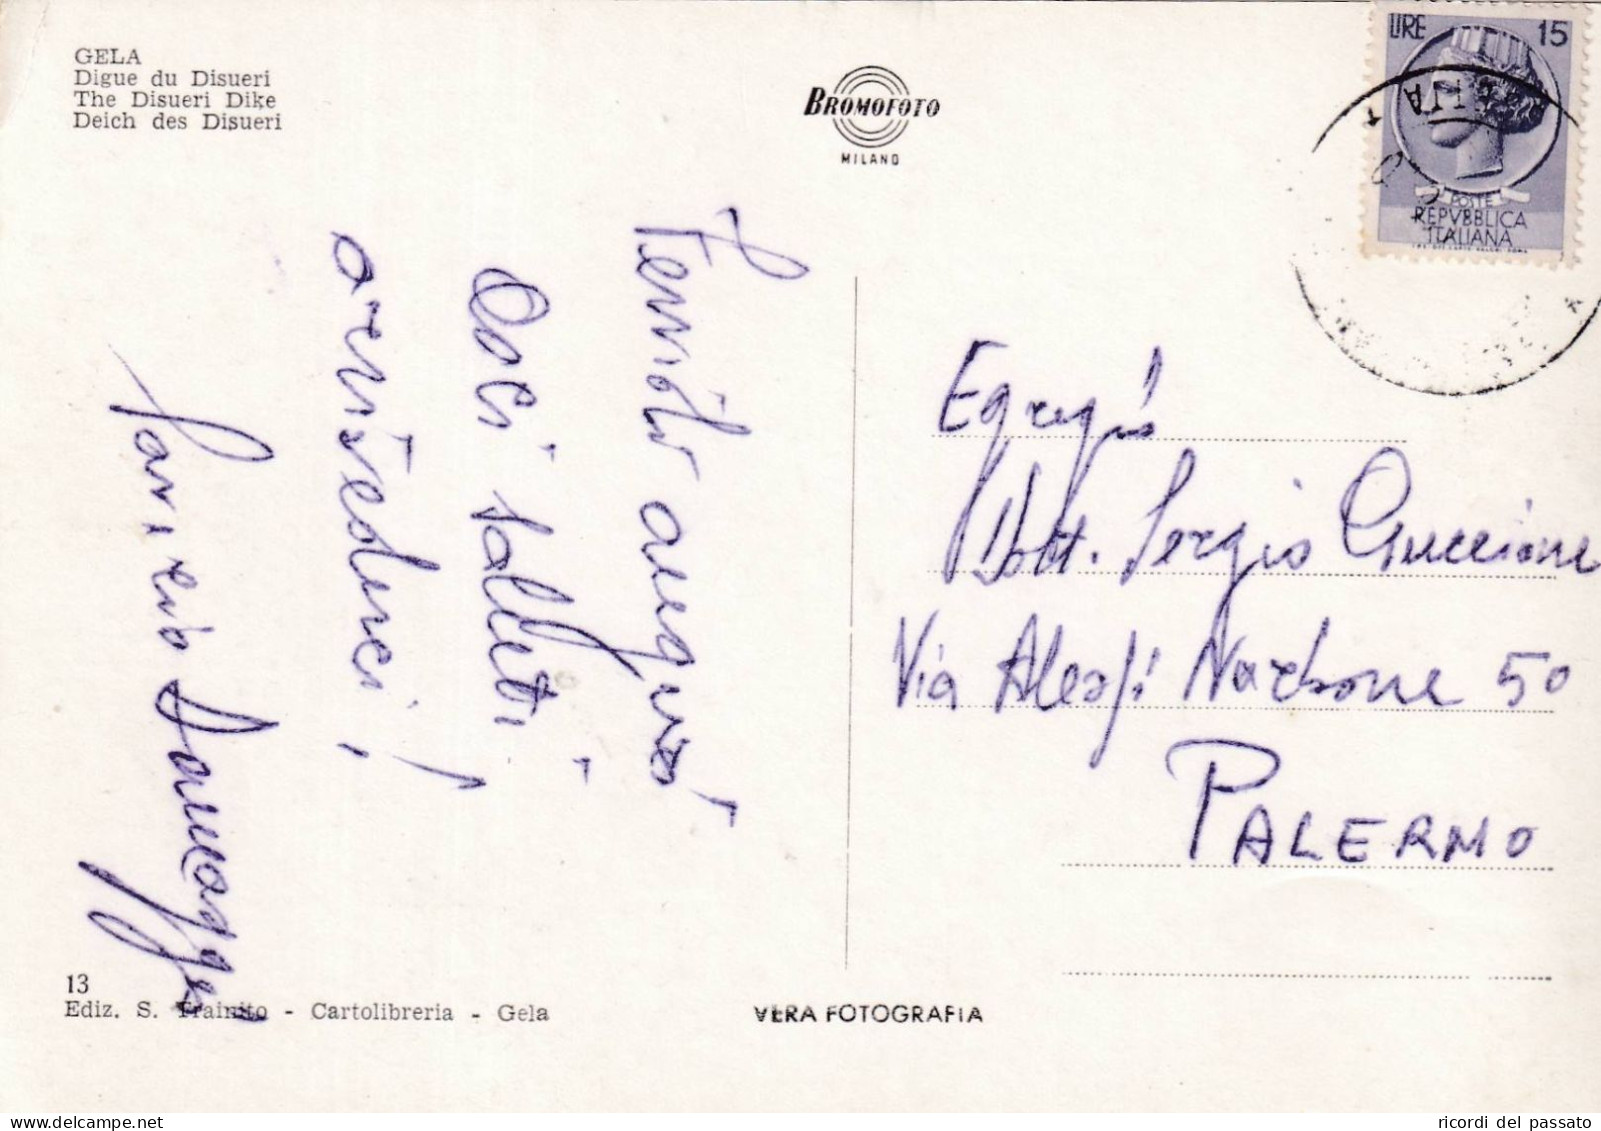 GELA
Digue du Disueri
The Disueri Dike
Deich des Disueri
BROMOFOTO
MILANO
LIRE 15
POSTE
REPVBBLICA
ITALIANA
Fervidi auguri
saluti
arrivederci!
Egregio
Dott. Sergio Guccione
Via Alessi Narbone 50
PALERMO
13
Ediz. S. Trainito - Cartolibreria - Gela
VERA FOTOGRAFIA
ricordi del passato